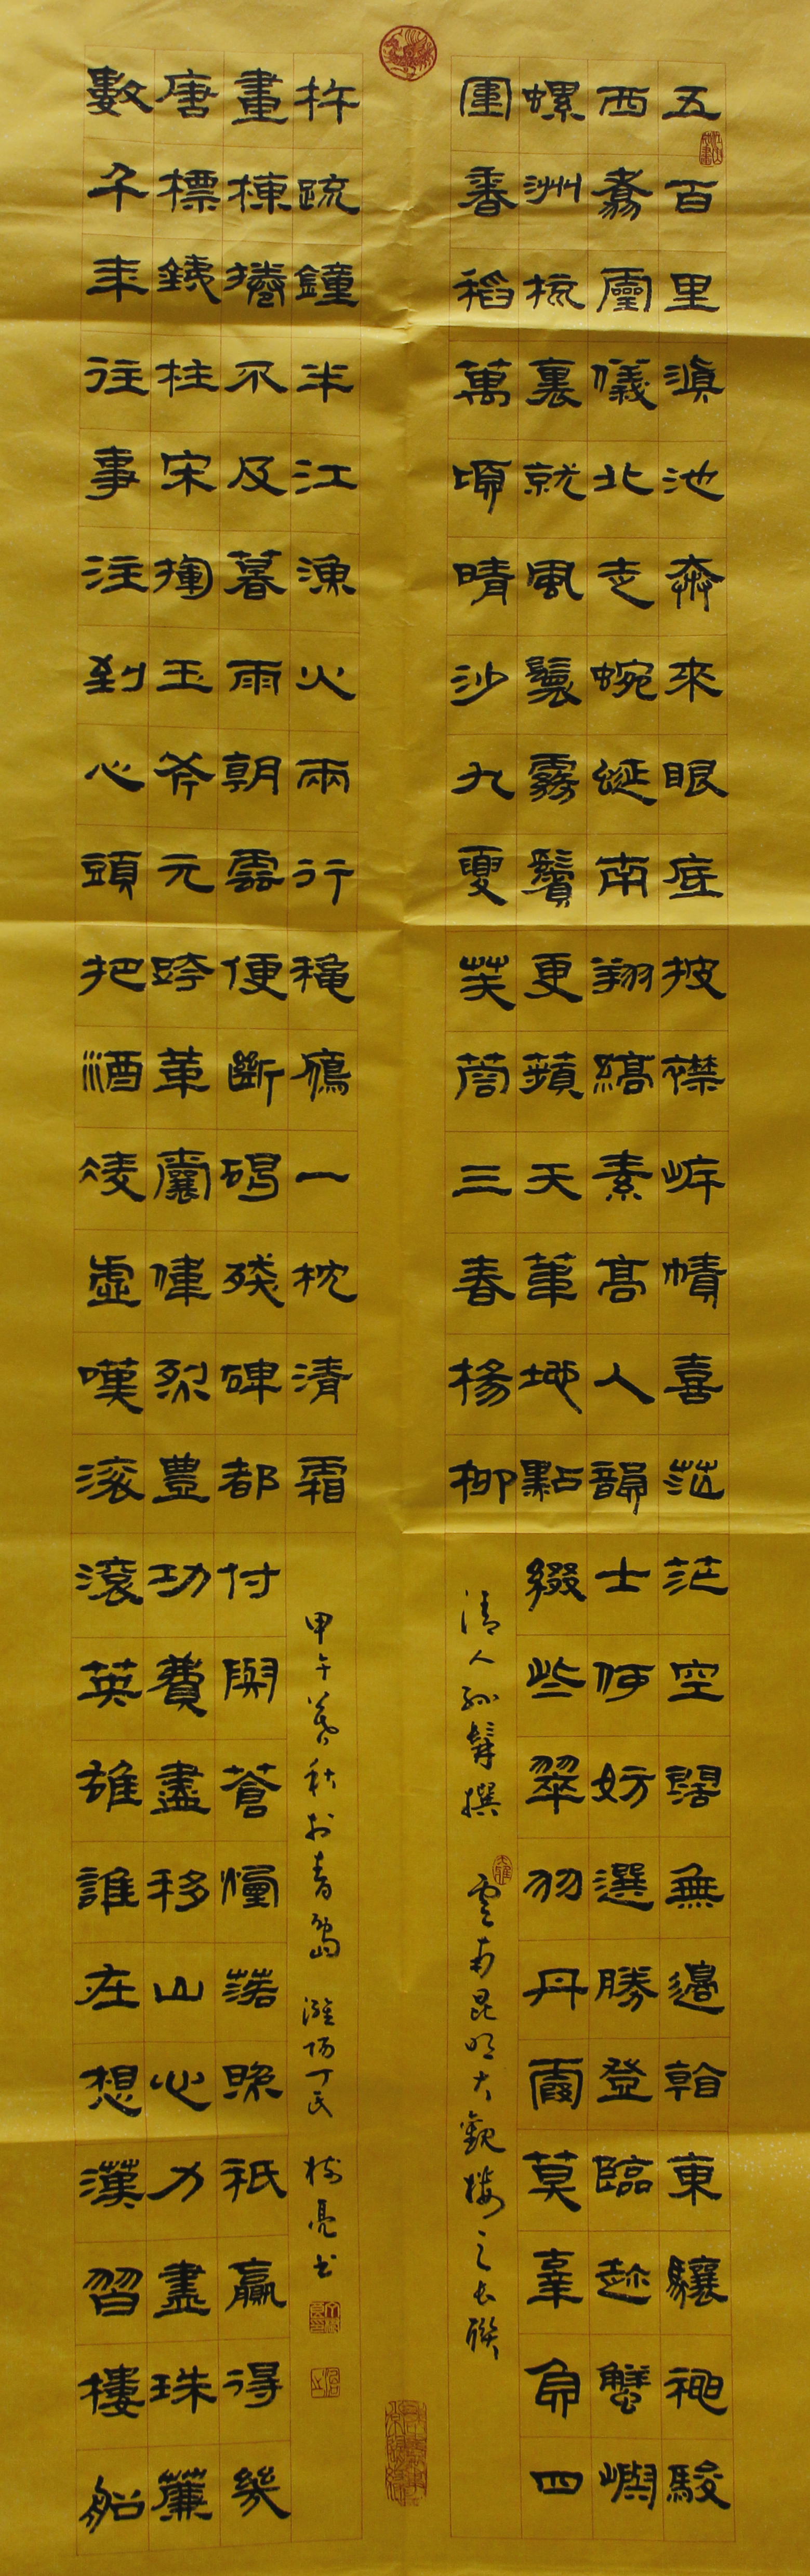 五百里滇池奔來眼底披襟岸幘喜茫茫空闊無邊看東驤神駿
西翥靈儀北走蜿蜒南翔縞素高人韻士何妨選勝登臨趁蟹嶼
螺洲梳裹就風鬟霧鬢更蘋天葦地點綴些翠羽丹霞莫辜負四
圍香稻萬頃晴沙九夏芙蓉三春楊柳
清人孫髯撰 雲南昆明大觀樓之長聯
數千年往事注到心頭把酒凌虛嘆滾滾英雄誰在想漢習樓船
唐標鐵柱宋揮玉斧元跨革囊偉烈豐功費盡移山心力盡珠簾
畫棟捲不及暮雨朝雲便斷碣殘碑都付與蒼煙落照祇贏得幾
杵疏鐘半江漁火兩行秋雁一枕清霜
甲午暮秋於青島 濰陽丁氏 樹亮書